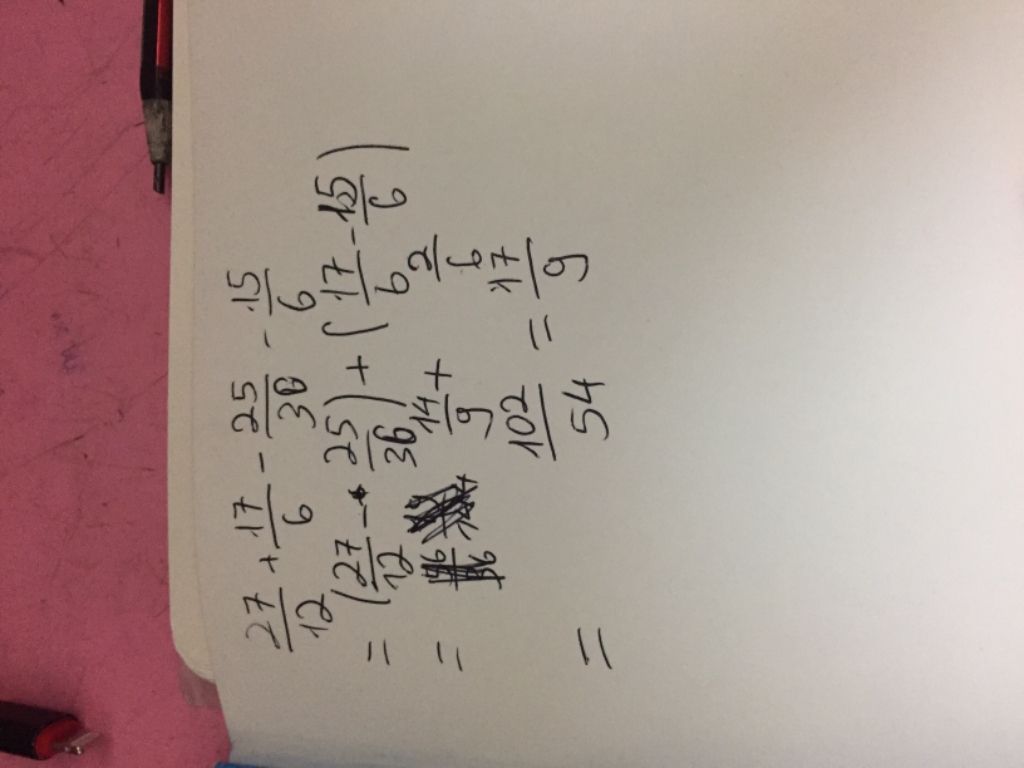 27/12 + 17/6 - 25/36 - 15/6
= (27/12 - 25/36) + (17/6 - 15/6)
= 14/9 + 2/6
= 102/54 = 17/9